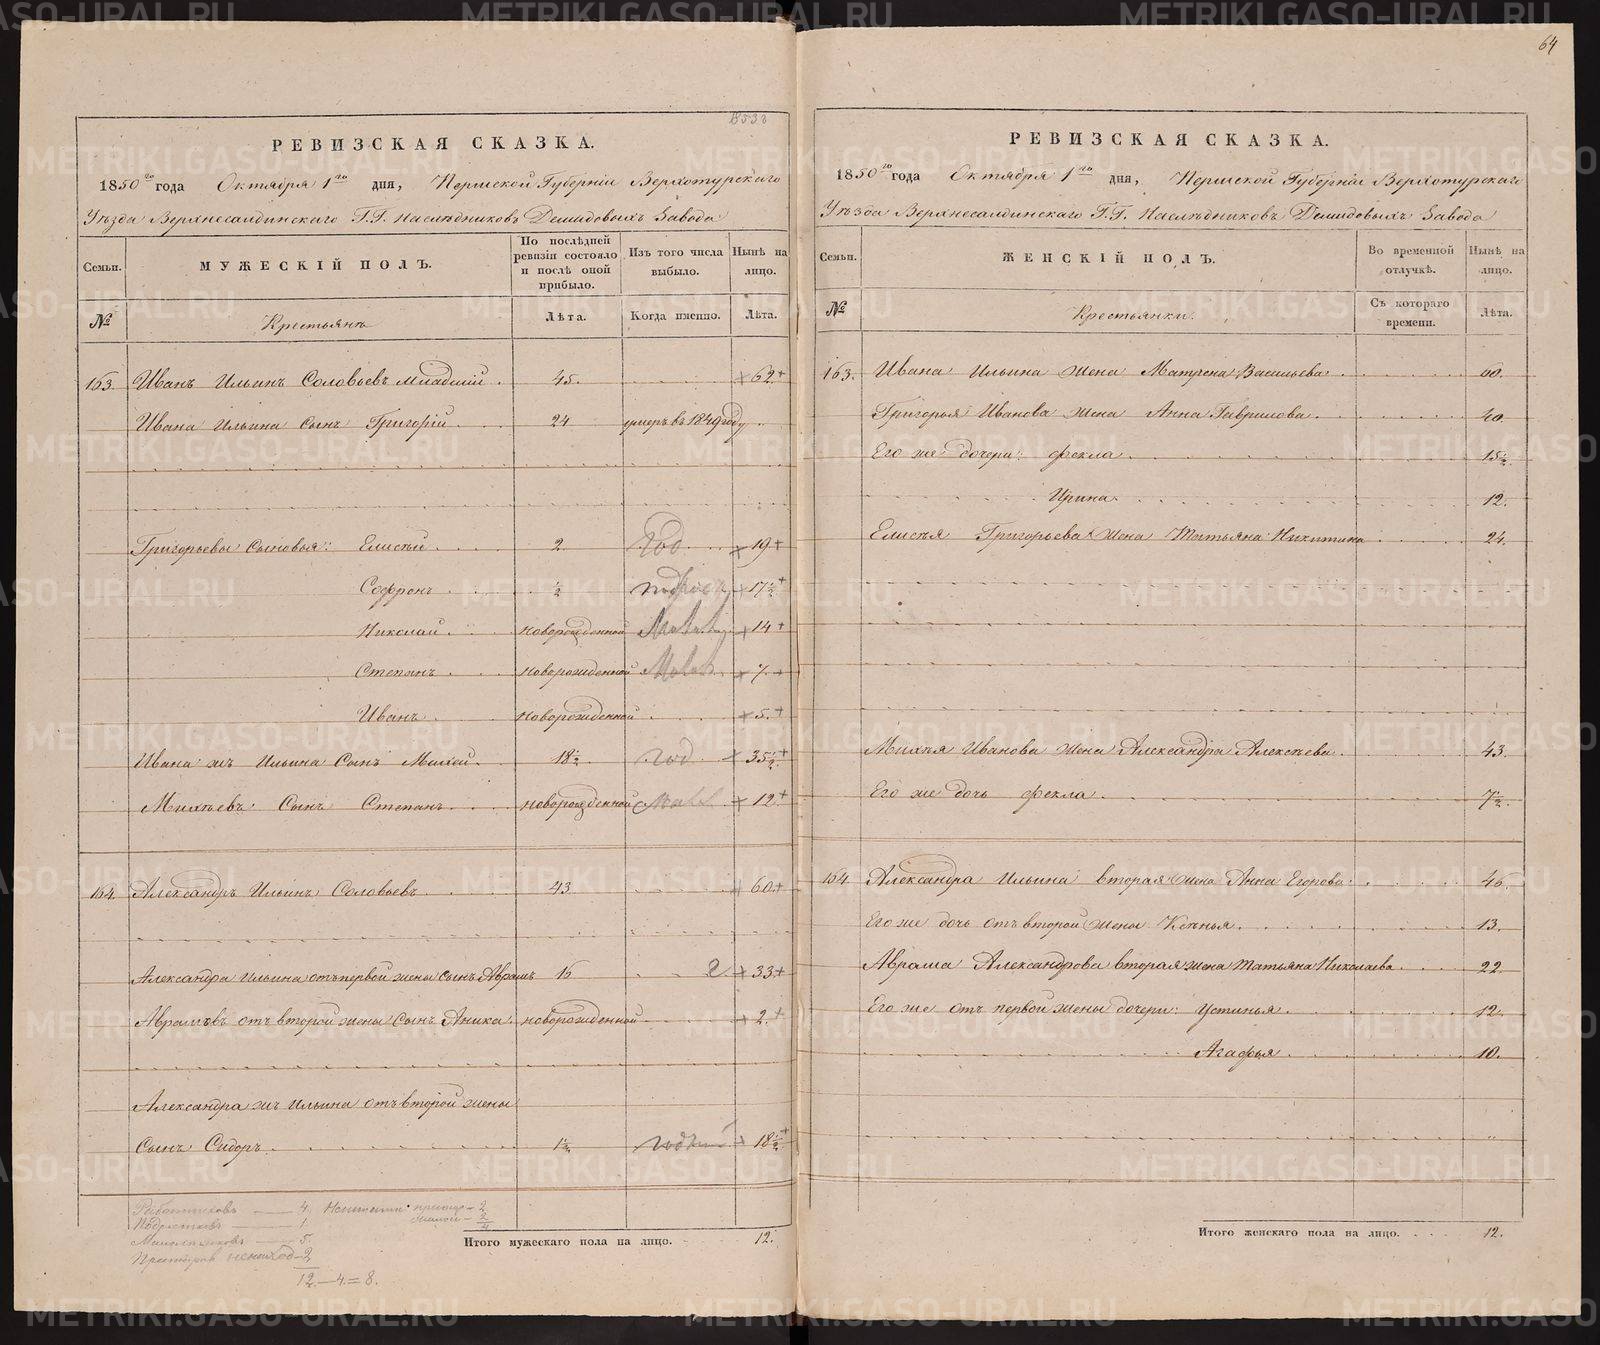 64
РЕВИЗСКАЯ СКАЗКА.
1850го года Октября 1го дня, Пермской Губерніи Верхотурскаго
Уѣзда Верхнесалдинскаго Г.Г. Наслѣдниковъ Демидовыхъ Завода
Семьи.
МУЖЕСКІЙ ПОЛЪ.
По послѣдней ревизіи состояло и послѣ оной прибыло.
Изъ того числа выбыло.
Нынѣ на лицо.
№
Крестьянъ
Лѣта.
Когда именно.
Лѣта.
163. Иванъ Ильинъ Соловьевъ младшій 45. 62
Ивана Ильина сынъ Григорій 24 умеръ въ 1849 году
Григорьевы сыновья: Елисѣй 2 год 19
Софронъ ½ подрост 17½
Николай новорожденной Малол 14
Степанъ новорожденной Малол 7
Иванъ новорожденной 5
Ивана жъ Ильина сынъ Михей 18½ год 35½
Михѣевъ сынъ Степанъ новорожденной Малол 12
164. Александръ Ильинъ Соловьевъ 43 60
Александра Ильина отъ первой жены сынъ Аврамъ 16 2 33
Аврамовъ отъ второй жены сынъ Аника новорожденной 2
Александра жъ Ильина отъ второй жены
сынъ Сидоръ 1½ 18½
Работниковъ — 4.
Подростковъ — 1.
Малолѣтковъ — 5.
Престар неспособ — 2
12 — 4 = 8.
Итого мужескаго пола на лицо. 12.
РЕВИЗСКАЯ СКАЗКА.
1850го года Октября 1го дня, Пермской Губерніи Верхотурскаго
Уѣзда Верхнесалдинскаго Г.Г. Наслѣдниковъ Демидовыхъ Завода
Семьи.
ЖЕНСКІЙ ПОЛЪ.
Во временной отлучкѣ.
Нынѣ на лицо.
№
Крестьянки.
Съ котораго времени.
Лѣта.
163. Ивана Ильина жена Матрена Васильева 60.
Григорья Иванова жена Анна Гаврилова 40.
Его же дочери: Фекла 15½
Ирина 12.
Елисѣя Григорьева жена Татьяна Никитина 24.
Михѣя Иванова жена Александра Алексѣева 43.
Его же дочь Фекла 7½
164. Александра Ильина вторая жена Анна Егорова 46.
Его же дочь отъ второй жены Ксѣнья 13.
Аврама Александрова вторая жена Татьяна Николаева 22
Его же отъ первой жены дочери: Устинья 12.
Агафья 10.
Итого женскаго пола на лицо. 12.
METRIKI.GASO-URAL.RU